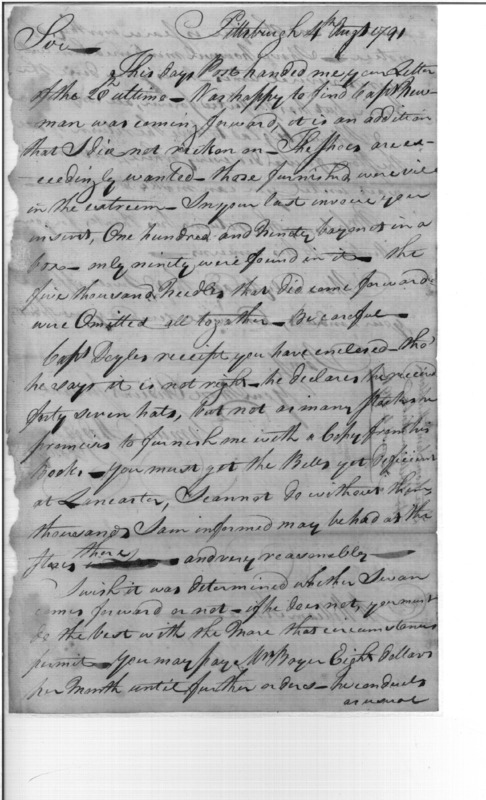 Pittsburgh 4th Augt 1791
Sir
This days Post handed me your Letter
of the 28 ultimo - Was happy to find Capt New-
man was coming forward, it is an addition
that I did not reckon on - The Shoes are ex-
ceedingly wanted - those furnished were vile
in the extreem - In your last invoice you
insert, One hundred and Ninety bayonet in a
box - only ninety were found in it - the
five thousand Needles that did come forward
were Omitted all together - be careful -
Capt Doyles receipt you have enclosed - tho'
he says it is not right - he declares he receivd
forty seven hats, but not as many Stocks he
promises to furnish me with a Copy from his
Books - You must get the Belts yet deficient
at Lancaster, I cannot do without them
thousands I am informed may be had at the
there and very reasonably -
I wish it was determined whether Swan
comes forward or not - if he does not, you must
do the best with the Mare that circumstances
permit - You may paye Mr Boyer Eight Dollars
per Month until further orders - he conducts
as usual